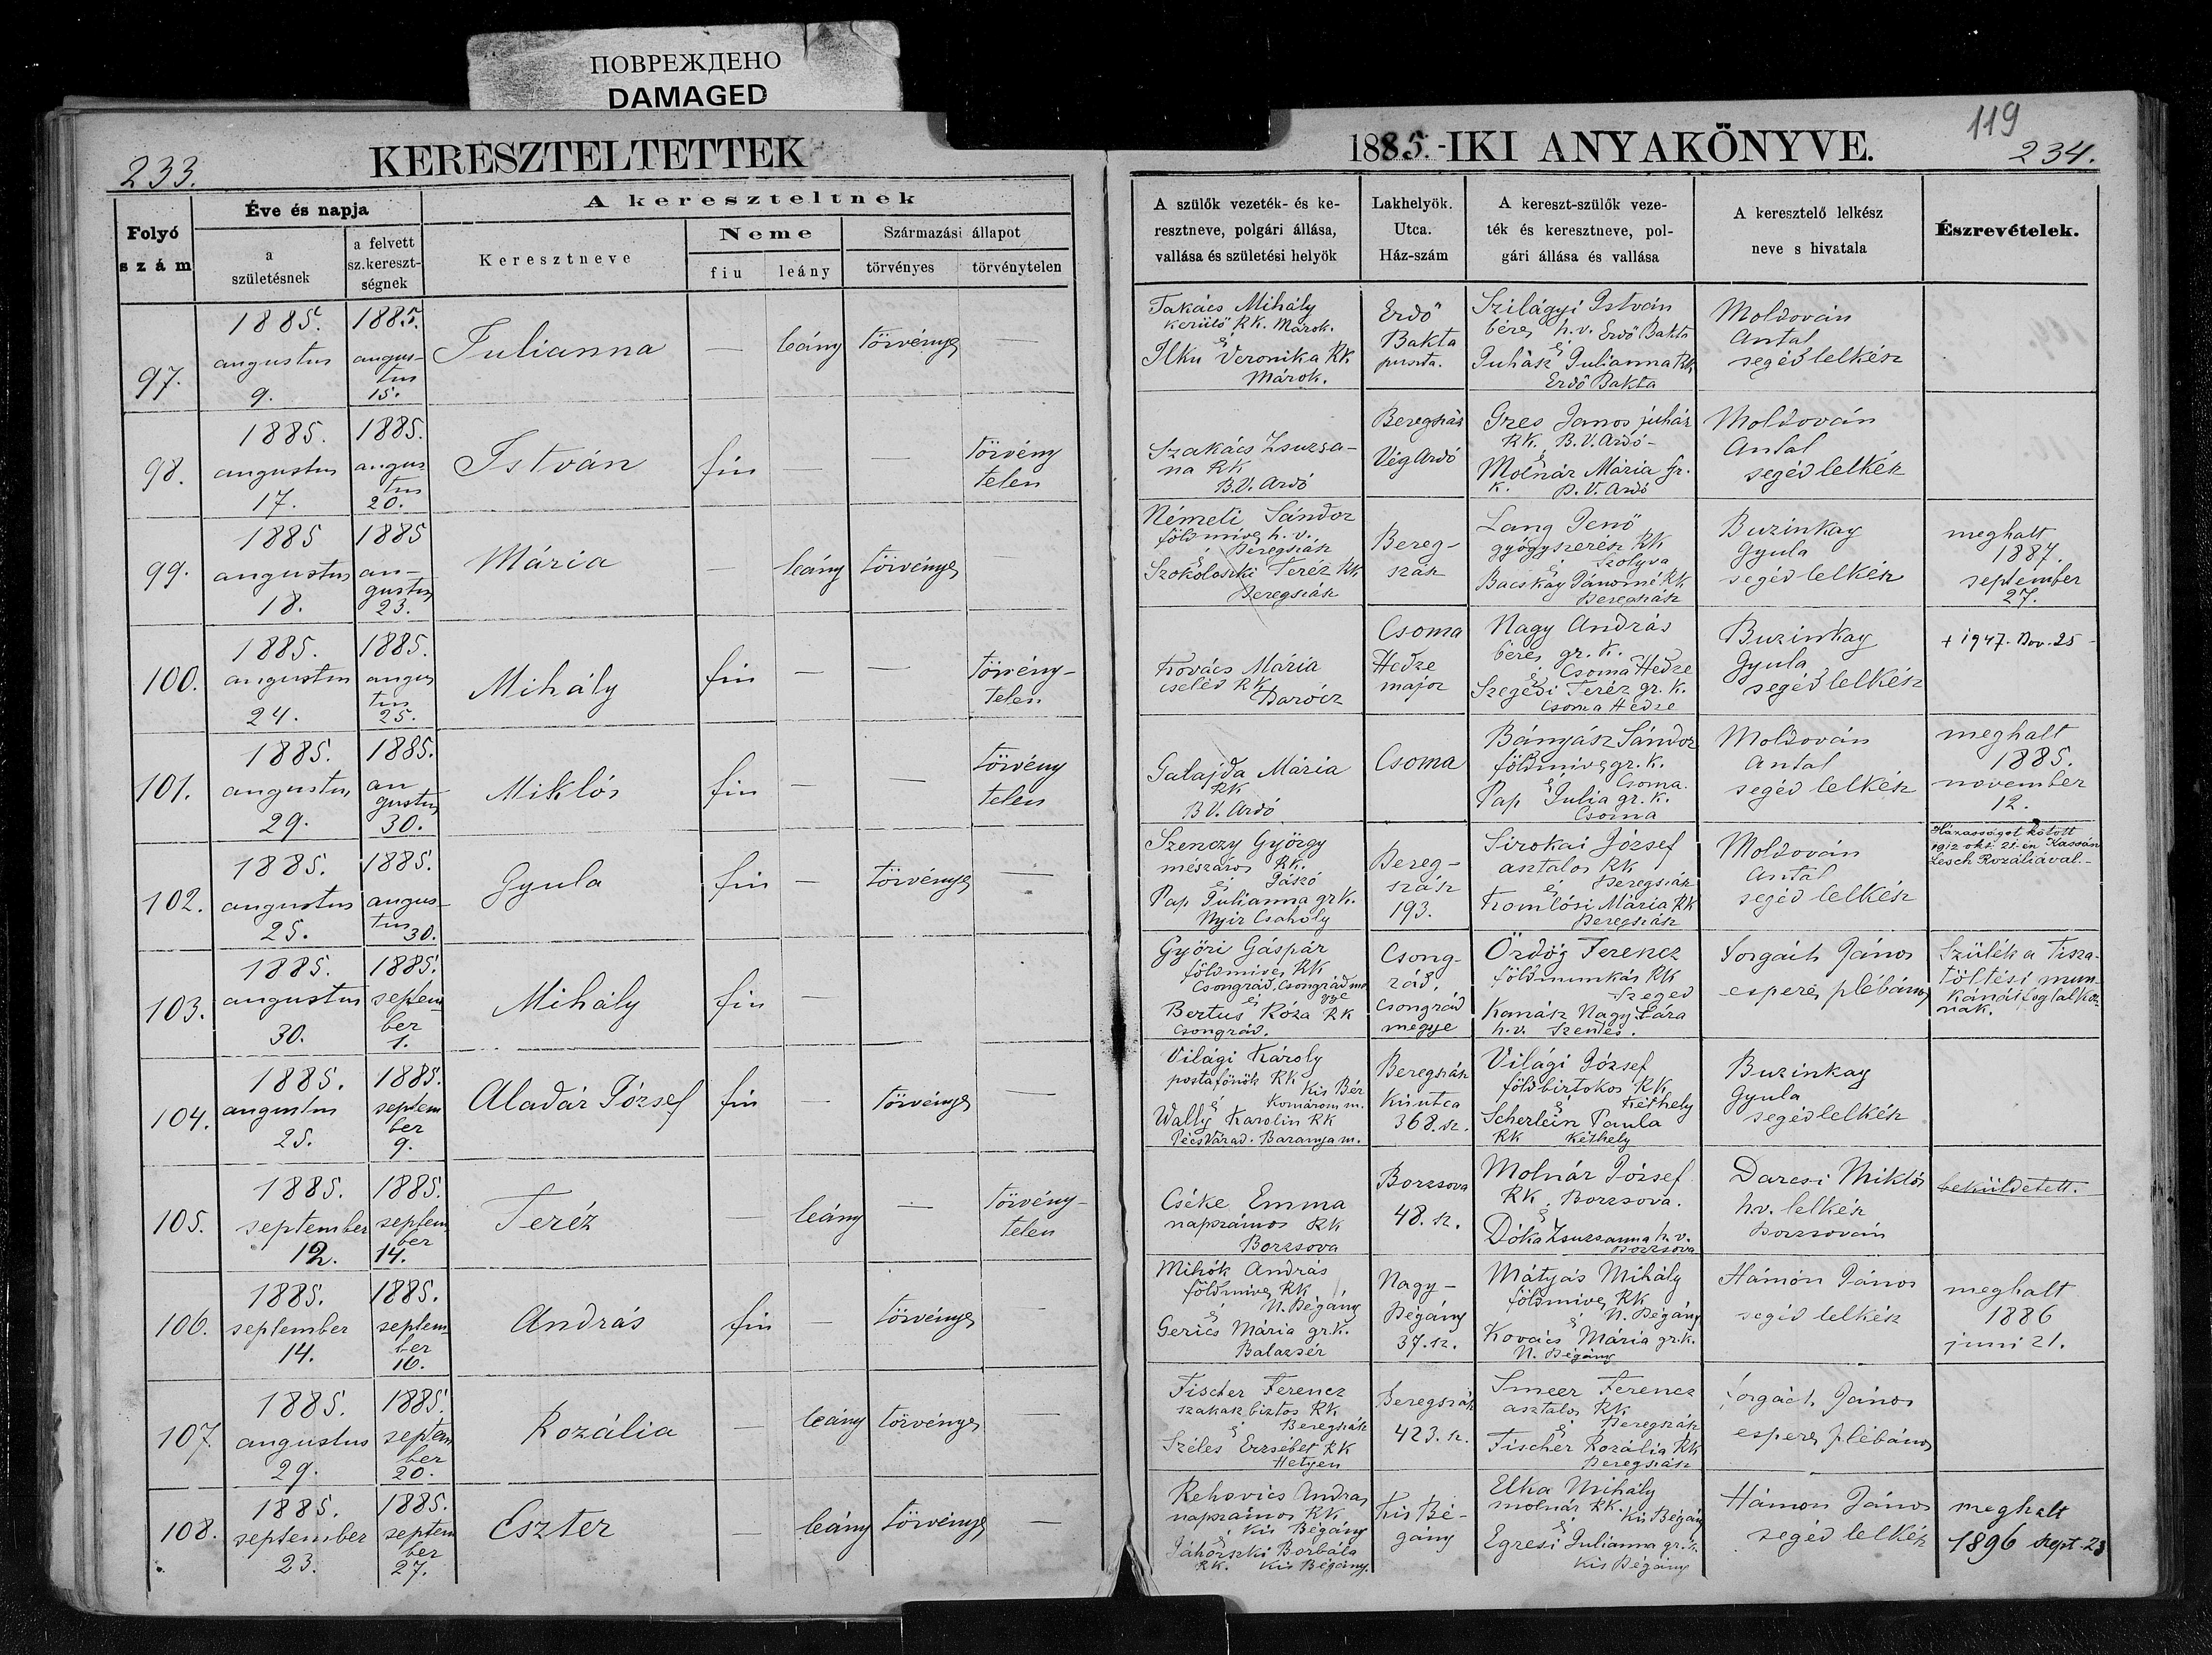 ПОВРЕЖДЕНО
DAMAGED
233.
KERESZTELTETTEK
Folyó szám
Éve és napja
a születésnek
a felvett sz.kereszt-ségnek
A kereszteltnek
Keresztneve
Neme
fiu
leány
Származási állapot
törvényes
törvénytelen
119
1885.-IKI ANYAKÖNYVE.
234.
A szülők vezeték- és ke-
resztneve, polgári állása,
vallása és születési helyök
Lakhelyök.
Utca.
Ház-szám
A kereszt-szülők veze-
ték és keresztneve, pol-
gári állása és vallása
A keresztelő lelkész
neve s hivatala
Észrevételek.
97.
1885. augustus 9.
1885. augus-tus 15.
Julianna
—
leány
törvényes
—
Takács Mihály
kerülő RK. Márok.
és
Ilku Veronika RK
Márok.
Erdő
Bakta
puszta.
Szilágyi István
béres h.v. Erdő Bakta
és
Juhász Julianna RK
Erdő Bakta
Moldován
Antal
segéd lelkész
98.
1885. augustus 17.
1885. augus tus 20.
István
fiu
—
törvény
telen
Szakács Zsuzsa-
na RK
B.V. Ardó
Beregszász
Vég Ardó
Gres Janos juhász
RK. B.V. Ardó-
és
Molnár Mária gr.
k. B.V. Ardó
Moldován
Antal
segéd lelkész
99.
1885 augustus 18.
1885 au-gustus 23.
Mária
—
leány
törvényes
—
Németi Sándor
földmives h.v.
és Beregszász
Szokoloszki Teréz RK
Beregszász
Bereg-
szász
Lang Jenő
gyógyszerész RK
és Szolyva
Bacskay Jánosné RK
Beregszász
Buzinkay
Gyula
segéd lelkész
meghalt
1887.
september
27.
100.
1885. augustus 24.
1885. augus tus 25.
Mihály
fiu
—
—
törvény-
telen
Kovács Mária
cseléd RK
Darócz
Csoma
Hedze
major
Nagy András
béres gr. k.
és Csoma Hedze
Szegedi Teréz gr. k.
Csoma Hedze
Buzinkay
Gyula
segéd lelkész
+ 1947. Nov. 25
101.
1885. augustus 29.
1885. au gustus 30.
Miklós
fiu
—
—
törvény
telen
Galajda Mária
RK
B V. Ardó
Csoma
Bányász Sándor
földmives gr. k.
és Csoma.
Pap Julia gr. k.
Csoma
Moldován
Antal
segéd lelkész
meghalt
1885.
november
12.
102.
1885. augustus 25.
1885. augus-tus 30.
Gyula
fiu
—
törvényes
—
Szenczy György
mészáros RK.
és Jászó
Pap Julianna gr k.
Nyir Csaholy
Bereg-
szász
193.
Sirokai József
asztalos RK
és Beregszász
Komlósi Mária RK
Beregszász
Moldován
Antal
segéd lelkész
Házasságot kötött
1912 okt. 21.én Kassán
Lesch Rozáliával.-
103.
1885. augustus 30.
1885. septem ber 1.
Mihály
fiu
—
Győri Gáspár
földmives RK
Csongrád, Csongrád me
és gye
Bertus Róza RK
Csongrád.
Csong-
rád.
Csongrád
megye
Ördög Ferencz
földmunkás RK
Szeged
Kanász Nagy Sára
h.v. Szentes.
Forgách János
esperes plébános
Szülék a Tisza-
töltési mun-
kánál foglalkoz-
nak.
104.
1885. augustus 25.
1885. septem ber 9.
Aladár József
fiu
—
törvényes
—
Világi Károly
postafőnök RK
és Kis Bér
Komárom m.
Wally Karolin RK
Pécs Várad. Baranya m.
Beregszász
Kisutca
368. sz.
Világi József
földbirtokos RK
és Kéthely
Scherlein Paula
RK Kéthely
Buzinkay
Gyula
segéd lelkész
105.
1885. september 12.
1885. septem ber 14.
Teréz
—
leány
—
törvény-
telen
Cséke Emma
napszámos RK
Borzsova
Borzsova
48. sz.
Molnár József
RK. Borzsova.
és
Dóka Zsuzsanna h.v.
Borzsova
Darcsi Miklós
h.v. lelkész
Borzsován
beküldetett.
106.
1885. september 14.
1885. septem ber 16.
András
fiu
—
törvényes
—
Mihók András
földmives RK
és N. Bégány
Gerics Mária gr.k.
Balazsér
Nagy-
Bégány
37. sz.
Mátyás Mihály
földmives RK
és N. Bégány
Kovács Mária gr.k.
N. Bégány
Hámon János
segéd lelkész
meghalt
1886
juni 21.
107.
1885. augustus 29.
1885. septem ber 20.
Rozália
—
leány
törvényes
—
Fischer Ferencz
szakaszbiztos RK
és Beregszász
Széles Erzsébet RK
Hetyen
Beregszász
423. sz.
Smeer Ferencz
asztalos RK
és Beregszász
Fischer Rozália RK
Beregszász
Forgách János
esperes plébános
108.
1885. september 23.
1885. septem ber 27.
Eszter
—
leány
törvényes
—
Rehovics Andras
napszámos RK
és Kis Bégány
Borbála
RK. Kis Bégány.
Kis Bé-
gány
Elka Mihály
molnár RK.
és Kis Bégány
Egresi Julianna gr. k.
Kis Bégány
Hámon János
segéd lelkész
meghalt
1896 szept. 23